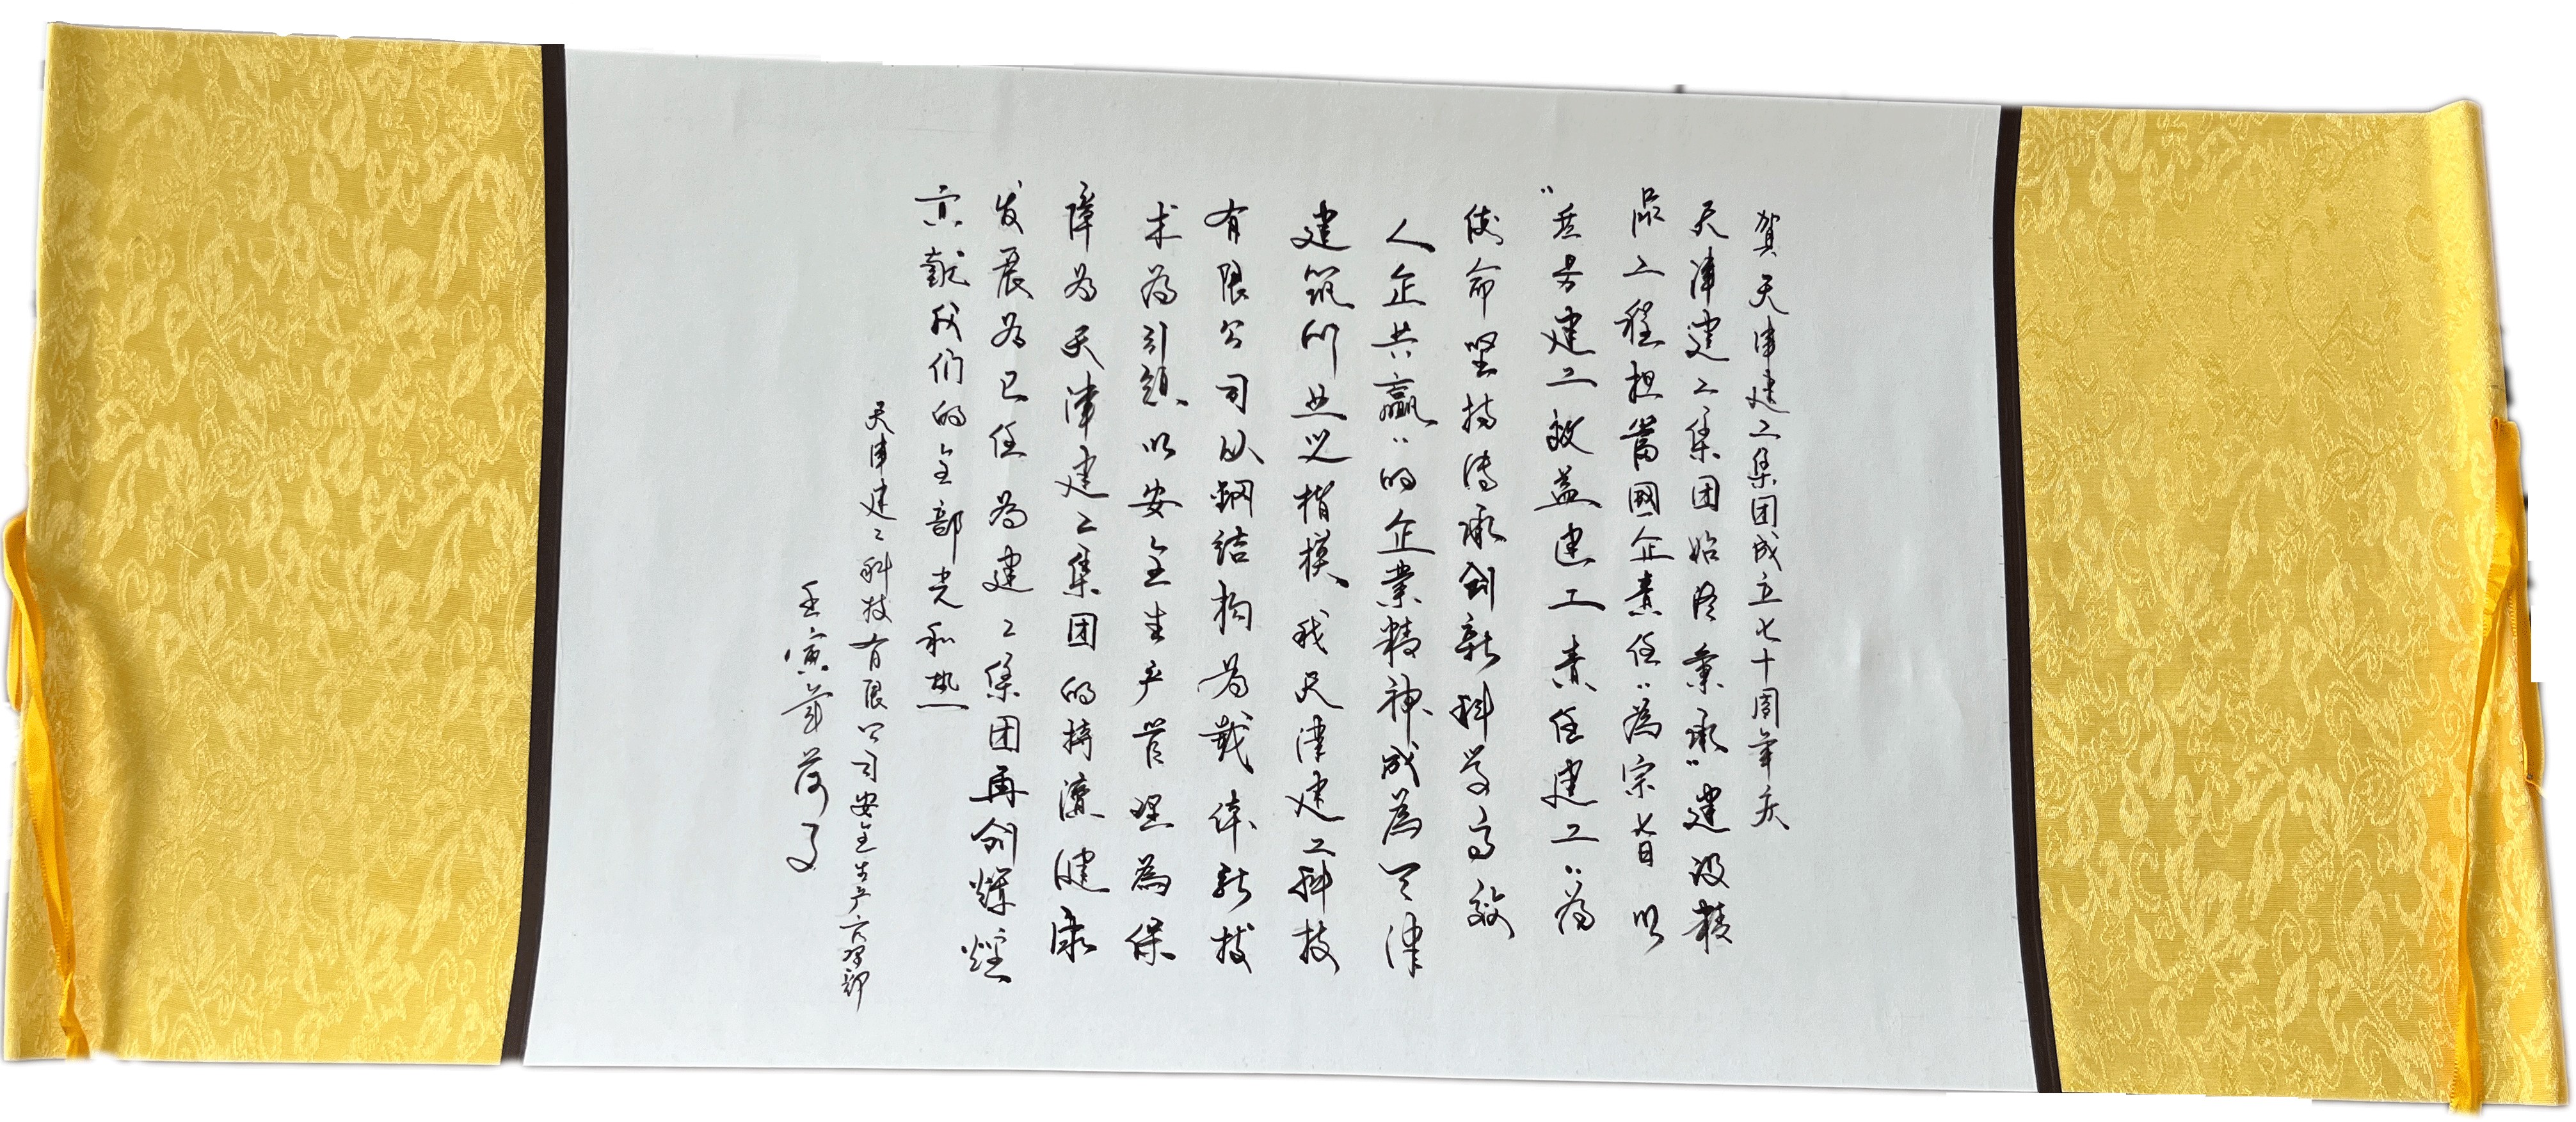 賀天津建工集团成立七十周年庆
天津建工集团始终秉承“建设精
品工程担當國企責任”為宗旨以
“品质建工效益建工責任建工”為
使命坚持传承创新科学高效
人企共赢”的企業精神成為天津
建筑行业之楷模、我天津建工科技
有限公司以鋼结构为载体新技
术為引领、以安全生产管理為保
障為天津建工集团的持續健康
发展為己任為建工集团再创輝煌
贡献我们的全部光和热
天津建工科技有限公司安全生产管理部
壬寅年荷月